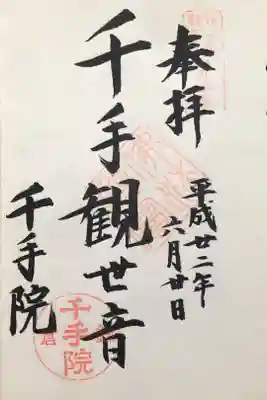 奉拝
平成廿二年
六月廿日
千手観世音
千手院
千手院